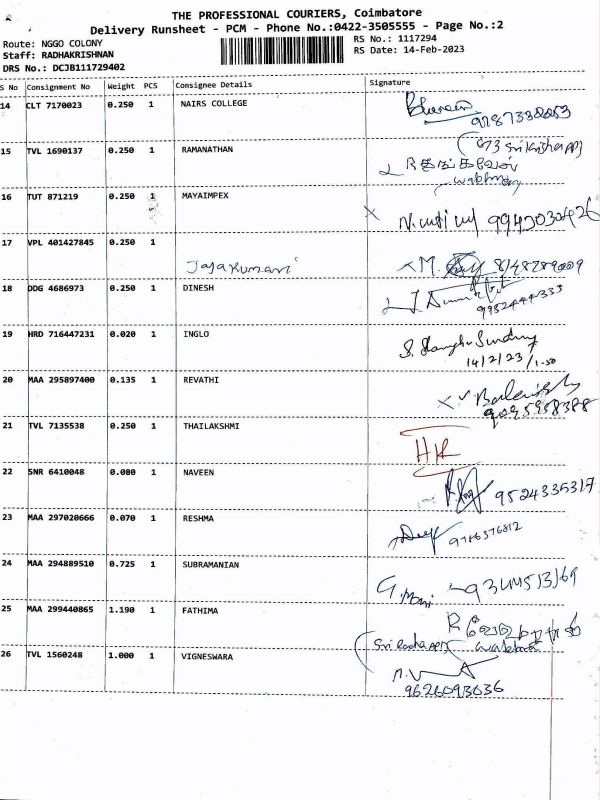 THE PROFESSIONAL COURIERS, Coimbatore
Delivery Runsheet - PCM - Phone No.:0422-3505555 - Page No.:2
Route: NGGO COLONY
RS No.: 1117294
Staff: RADHAKRISHNAN
RS Date: 14-Feb-2023
DRS No.: DCJB111729402
S No Consignment No Weight PCS Consignee Details Signature
14 CLT 7170023 0.250 1 NAIRS COLLEGE
15 TVL 1690137 0.250 1 RAMANATHAN
16 TUT 871219 0.250 1 MAYAIMPEX
9942030426
17 VPL 401427845 0.250 1
Jajakumari
18 DDG 4686973 0.250 1 DINESH
9952444333
19 HRD 716447231 0.020 1 INGLO
14/2/23/1.50
20 MAA 295897400 0.135 1 REVATHI
21 TVL 7135538 0.250 1 THAILAKSHMI
HR
22 SNR 6410048 0.080 1 NAVEEN
9524335317
23 MAA 297020666 0.070 1 RESHMA
24 MAA 294889510 0.725 1 SUBRAMANIAN
G. Mani
25 MAA 299440865 1.190 1 FATHIMA
26 TVL 1560248 1.000 1 VIGNESWARA
9626093636